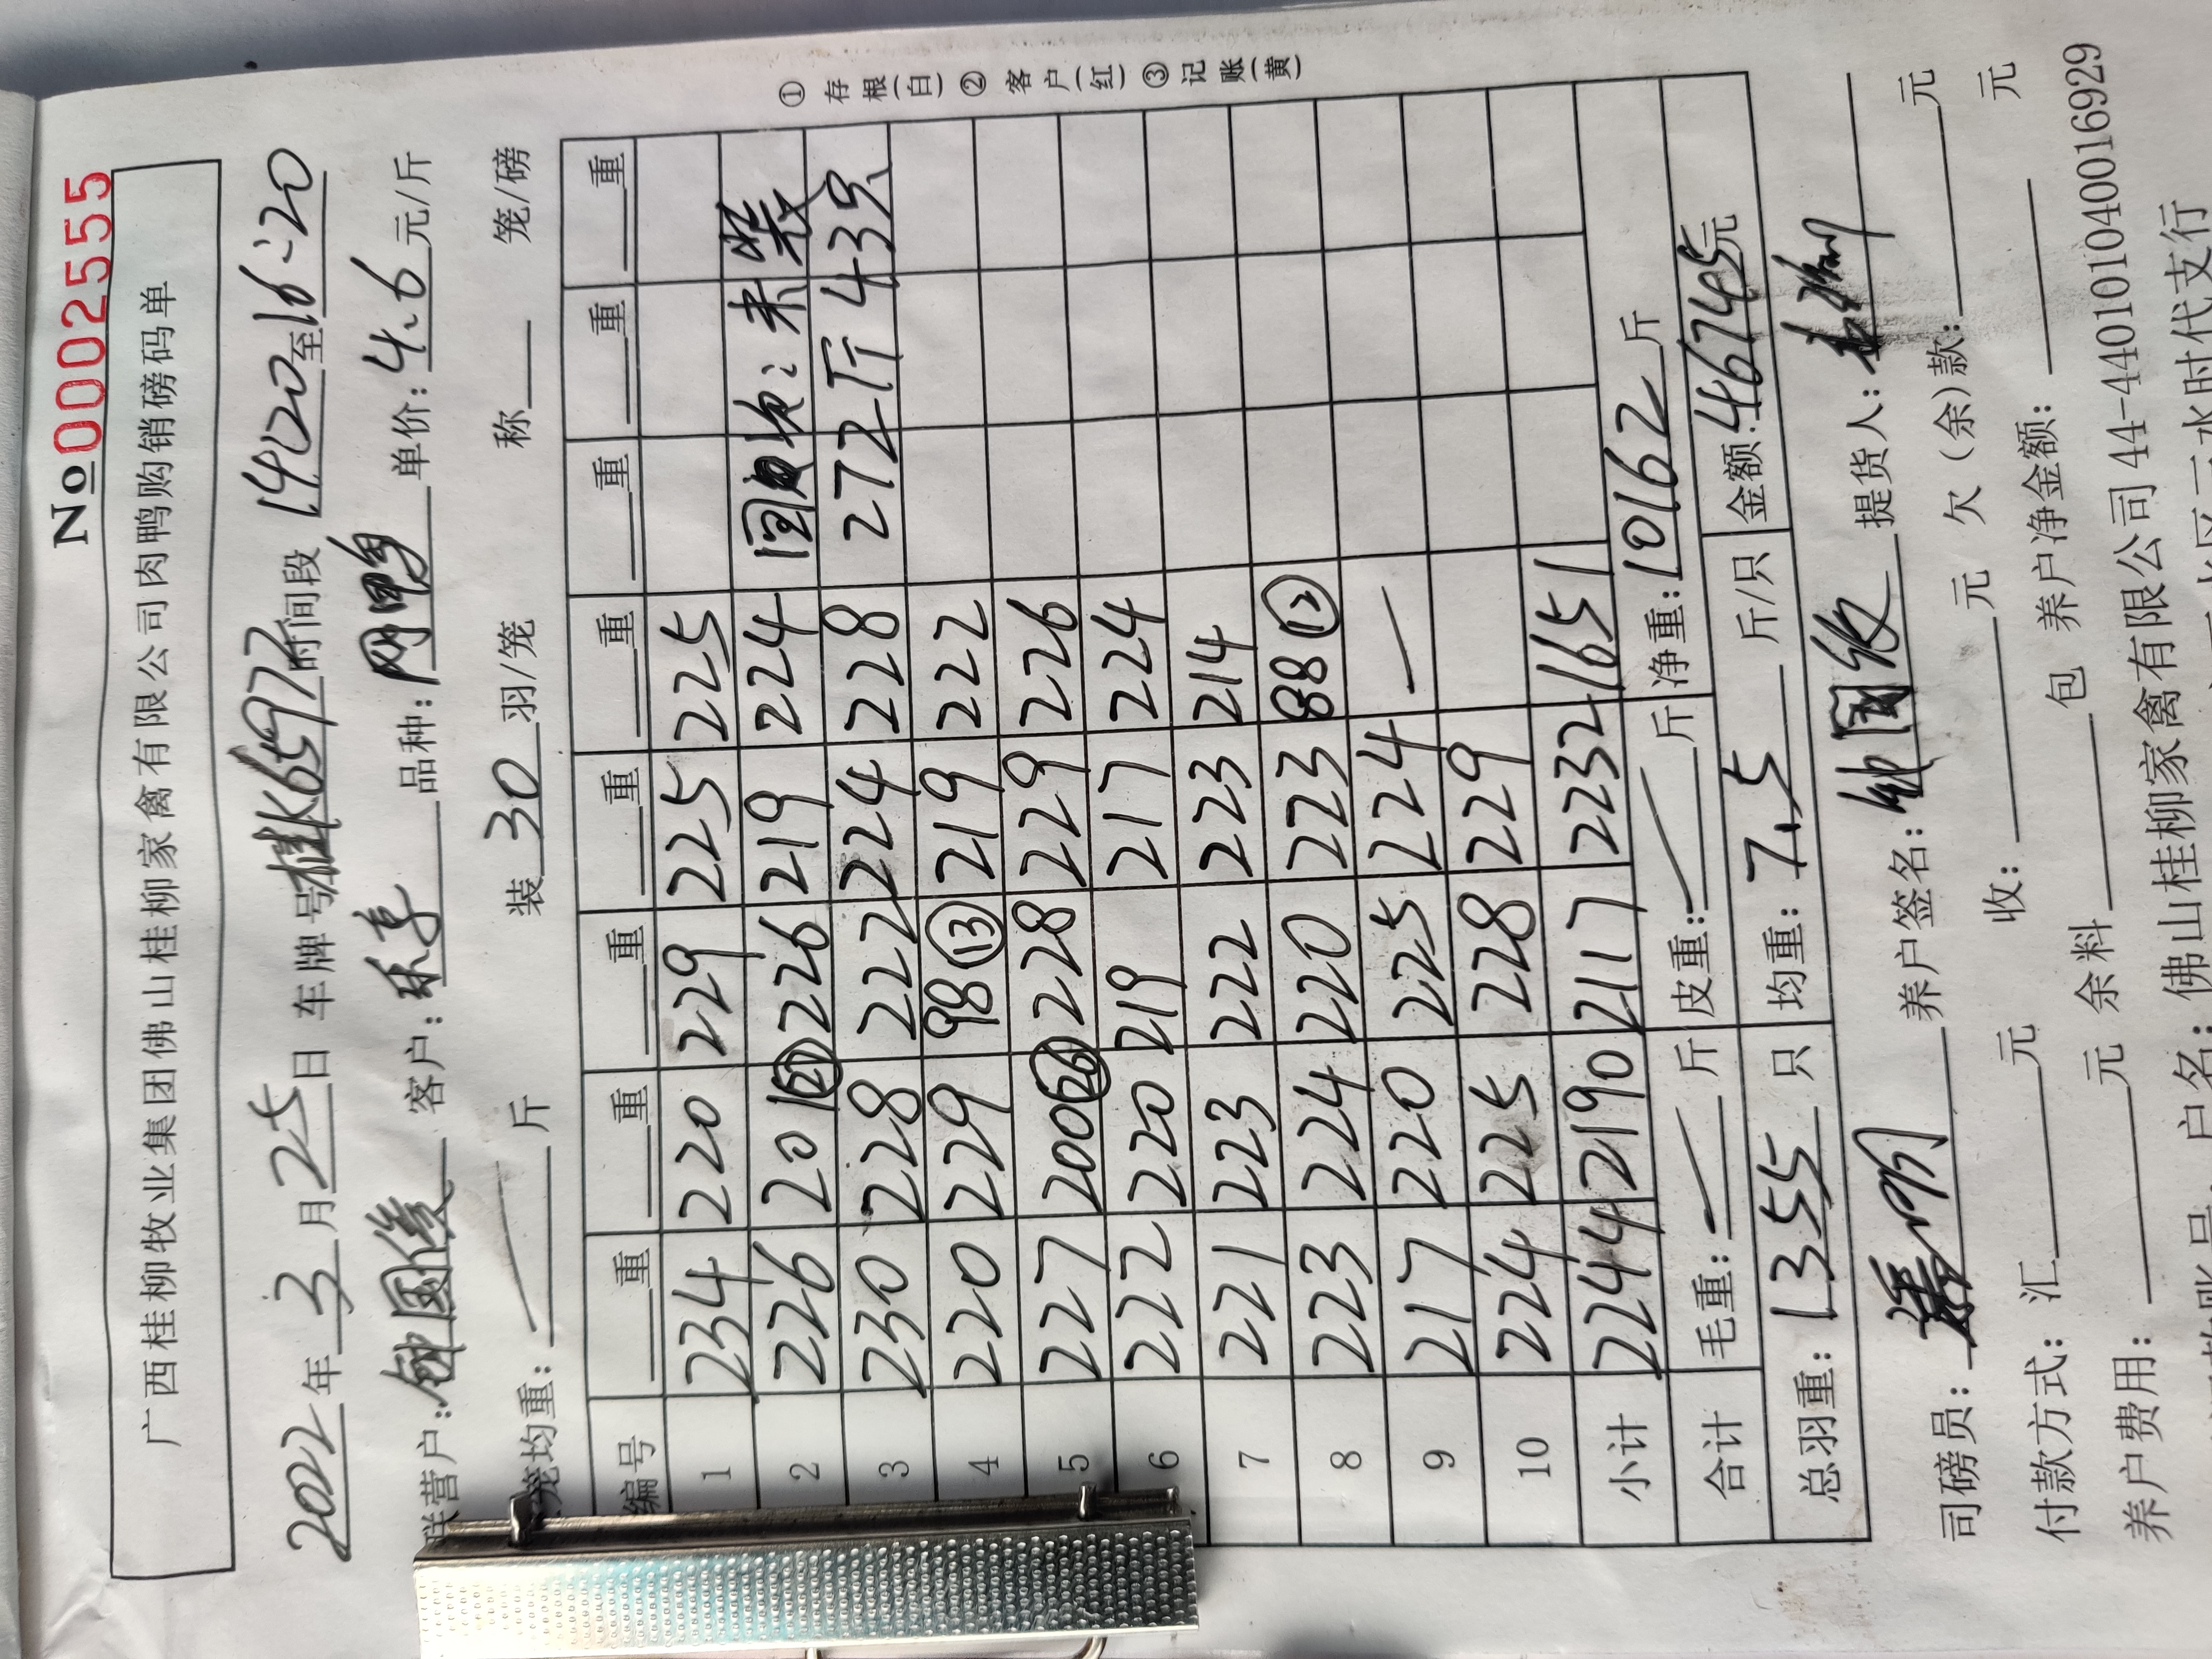 No 0002555
广西桂柳牧业集团佛山桂柳家禽有限公司肉鸭购销磅码单
2022年3月25日 车牌号桂K65977时间段14:20至16:20
联营户:钟国俊 客户:乐享 品种:网鸭 单价:4.6元/斤
笼均重: 斤 装30羽/笼 称 笼/磅
编号 重 重 重 重 重 重 重 重
1 234 220 229 225 225
2 226 201 ㉗ 226 219 224 回收:未装
3 230 228 222 224 228 272斤 43只
4 220 229 98 ⑬ 219 222
5 227 200 ㉖ 228 229 226
6 222 220 219 217 224
7 221 223 222 223 214
8 223 224 220 223 88 ⑫
9 217 220 225 224 —
10 224 225 228 229
小计 2244 2190 2117 2232 1651
合计 毛重: 斤 皮重: 斤 净重:10162斤
总羽重:1355只 均重:7.5斤/只 金额:46745元
司磅员: 养户签名:钟国俊 提货人:
付款方式:汇 元 收: 元 欠(余)款: 元
养户费用: 元 余料 包 养户净金额: 元
户名:佛山桂柳家禽有限公司44-440101040016929
①存根(白)②客户(红)③记账(黄)